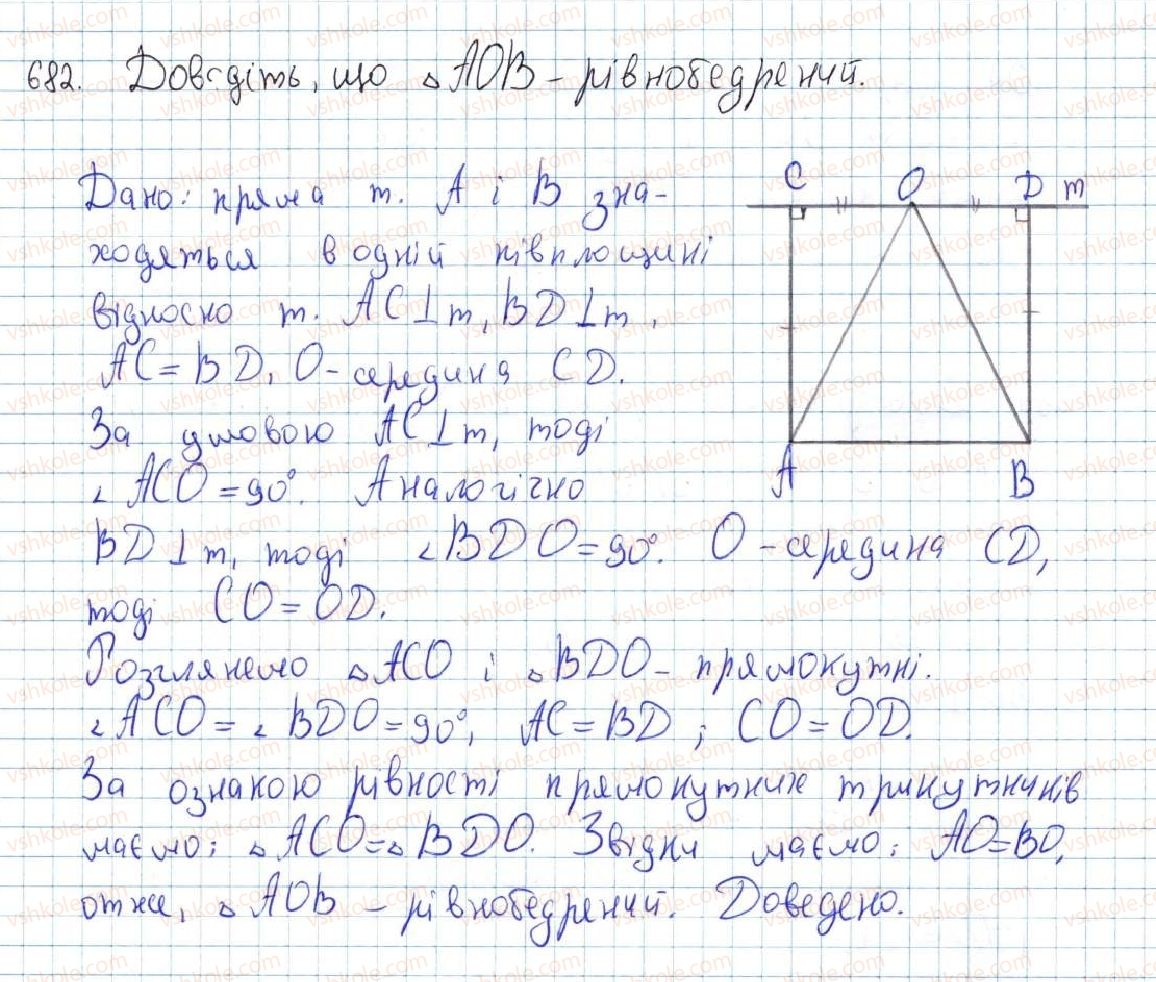 682. Доведіть, що △AOB – рівнобедрений.
Дано: пряма m. A і B зна-
ходяться в одній півплощині
відносно m. AC⊥m, BD⊥m,
AC=BD, O-середина CD.
За умовою AC⊥m, тоді
∠ACO=90°. Аналогічно
BD⊥m, тоді ∠BDO=90°. O-середина CD,
тоді CO=OD.
Розглянемо △ACO і △BDO – прямокутні.
∠ACO=∠BDO=90°, AC=BD; CO=OD.
За ознакою рівності прямокутних трикутників
маємо: △ACO=△BDO. Звідки маємо: AO=BO,
отже, △AOB – рівнобедрений. Доведено.
C O D m
A B
vshkole.com